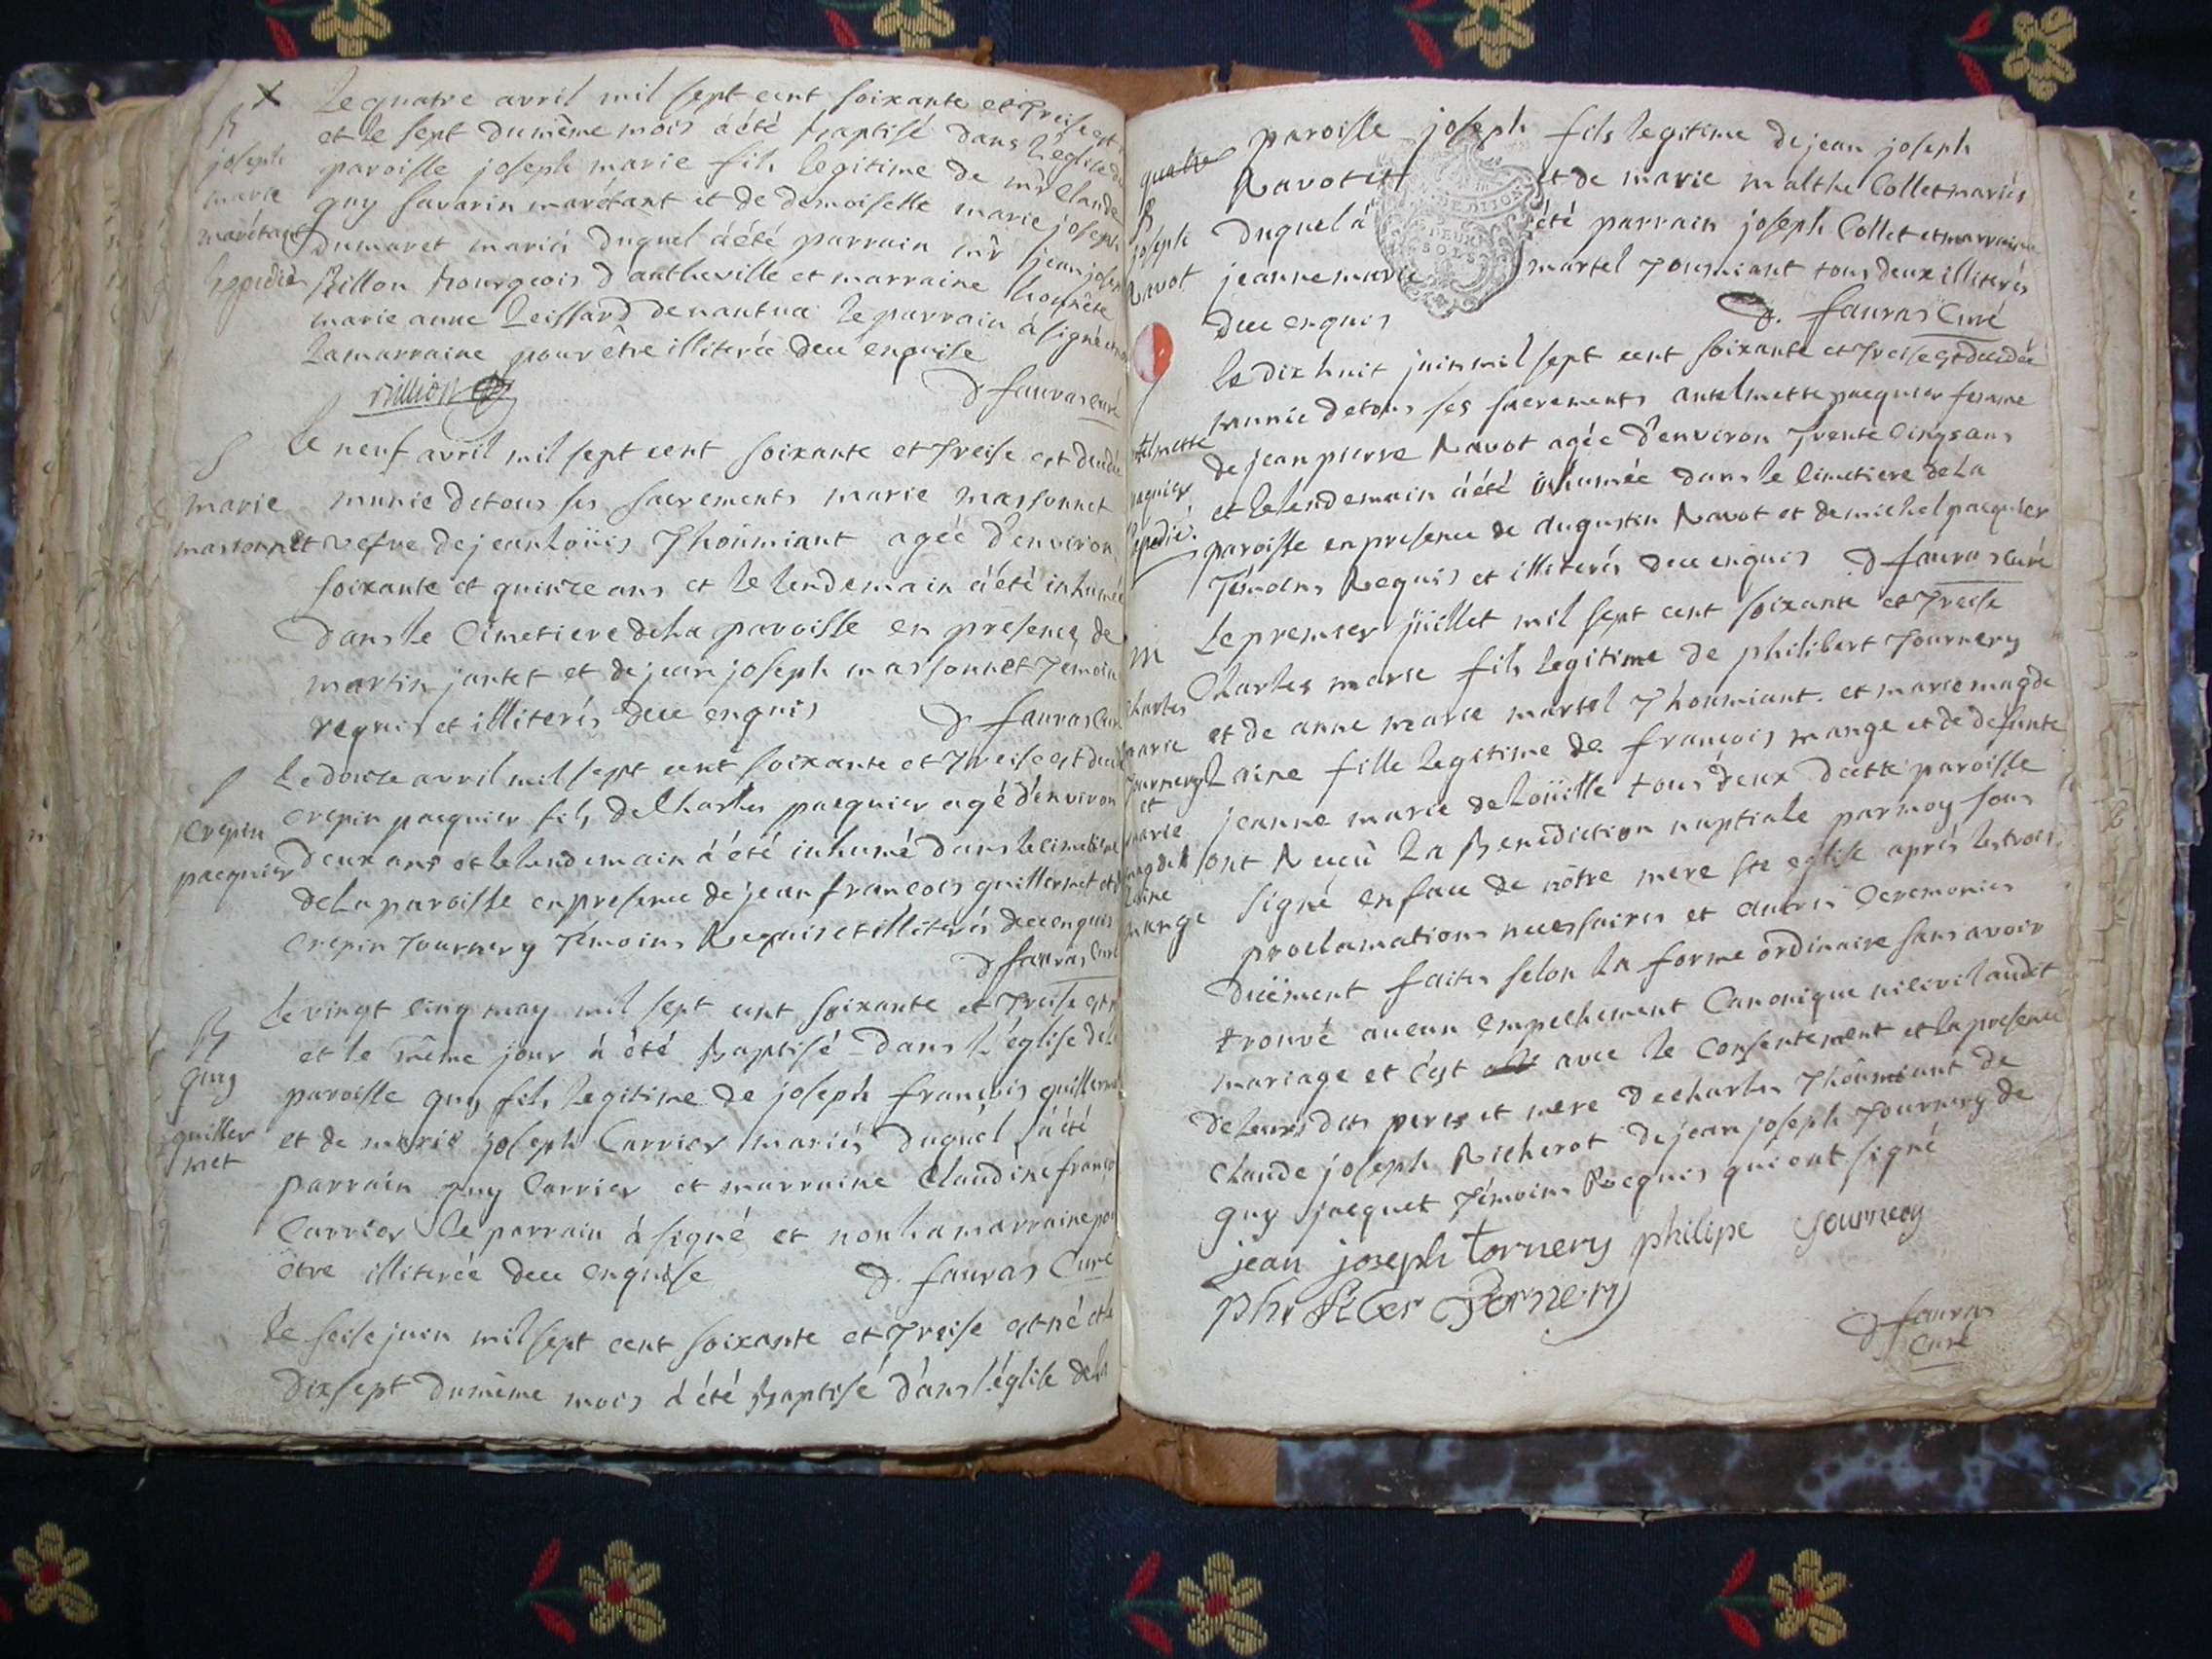 X Le quatre avril mil sept cent soixante et Treise est
et le sept du même mois à été Baptisé dans l'eglise de
paroisse joseph marie fils legitime de mr Claude
guy savarin marétant et de demoiselle marie joseph
dumaret mariés duquel à été parrain mr jean joseph
Rillon Bourgeois d'autheville et marraine honnête
marie anne Leissard de nantua le parrain à signé et non
La marraine pour être illiterée dece enquise
rillion
D fauras Curé
B
joseph
marie
marétant
Expedié
Le neuf avril mil sept cent soixante et Treise est decedée
munie de tous ses sacrements marie massonnet
vefve de jean Loüis Thoûmiant agée d'environ
soixante et quinze ans et le lendemain à été inhumée
dans le Cimetiere de La paroisse en présence de
martin jantet et de jean joseph massonnet Temoins
requis et illiterés dece enquis
D fauras Curé
S
marie
massonnet
Le douze avril mil sept cent soixante et Treise est decedé
crepin pacquier fils de Charles pacquier agé d'environ
deux ans et le lendemain à été inhumé dans le cimetiere
de La paroisse en presence de jean francois guillermet et de
crepin Tournery Témoins Requis et illiterés dece enquis
D fauras Curé
S
Crepin
pacquier
Le vingt cinq may mil sept cent soixante et Treise est né
et le même jour à été Baptisé dans l'église de la
paroisse guy fils legitime de joseph françois guillermet
et de marie joseph Carrier mariés duquel à été
parrain guy Carrier et marraine Claudine franç
Carrier le parrain à signé et non la marraine pour
être illiterée dece enquise
D. fauras Curé
B
guy
guiller
met
Le seise juin mil sept cent soixante et Treise est né et le
dixsept du même mois à été Baptisé dans l'église de La
paroisse joseph fils legitime de jean joseph
Ravot et et de marie malthe Collet mariés
duquel à été parrain joseph Collet et marraine
jeanne marie martel Toumiant tous deux illiterés
dece enquis
D. fauras Curé
quatre
B
joseph
Ravot
Le dix huit juin mil sept cent soixante et Treise est decedée
munie de tous ses sacrements antelmette pacquier femme
de jean pierre Ravot agée d'environ Trente cinq ans
et le lendemain à été inhumée dans le Cimetiere de La
paroisse en presence de augustin Ravot et de michel pacquier
Témoins Requis et illiterés dece enquis D fauras Curé
telmette
paquier
Expedié.
Le premier jüillet mil sept cent soixante et Treise
Charles marie fils legitime de philibert Tournery
et de anne marie martel Thoumiant. et marie magde
Laine fille legitime de françois mange et de defunte
jeanne marie de Loüille tous deux de cette paroisse
ont Reçû La Benediction nuptiale par moy sous
signé en face de nôtre mere ste eglise aprés les trois
proclamations necessaires et autres Ceremonies
düement faites selon la forme ordinaire sans avoir
trouvé aucun empechement Canonique ni civil audit
mariage et c'est avec le Consentement et la presence
de leurs dits peres et mere de charles Thoûmiant de
Claude joseph Richerot de jean joseph Tournery de
guy jacquet Témoins Recquis qui ont signé
jean joseph tornery philipe tournery
D fauras
Curé
M
Charles
marie
Tournery
et
marie
magde
Laine
mange